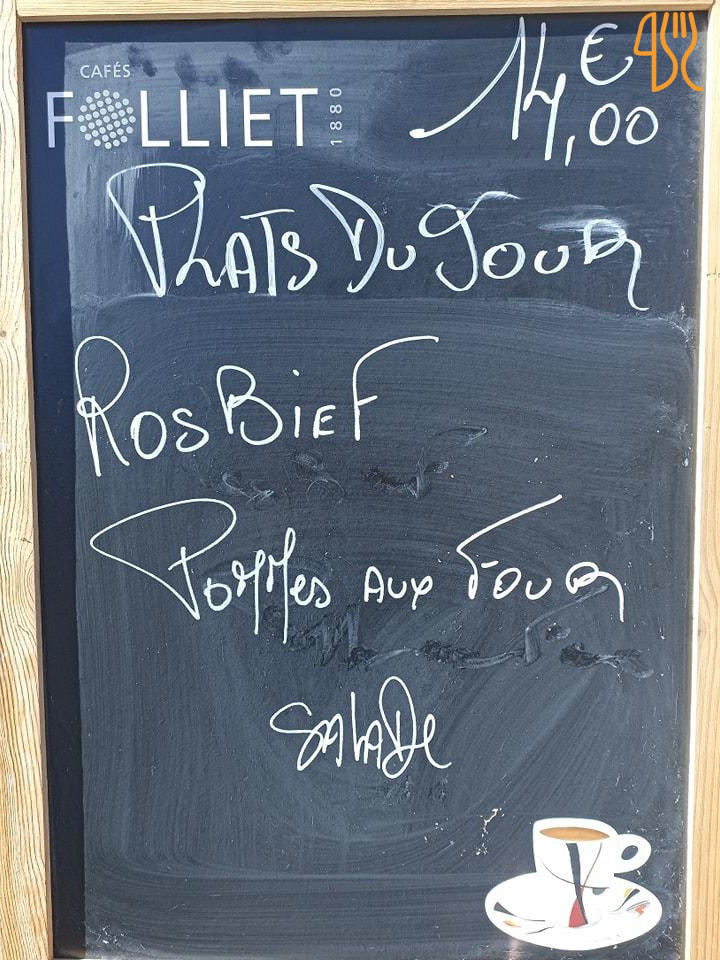 CAFÉS
FOLLIET 1880
14,00 €
PLATS DU JOUR
ROSBIEF
POMMES AUX FOUR
SALADE